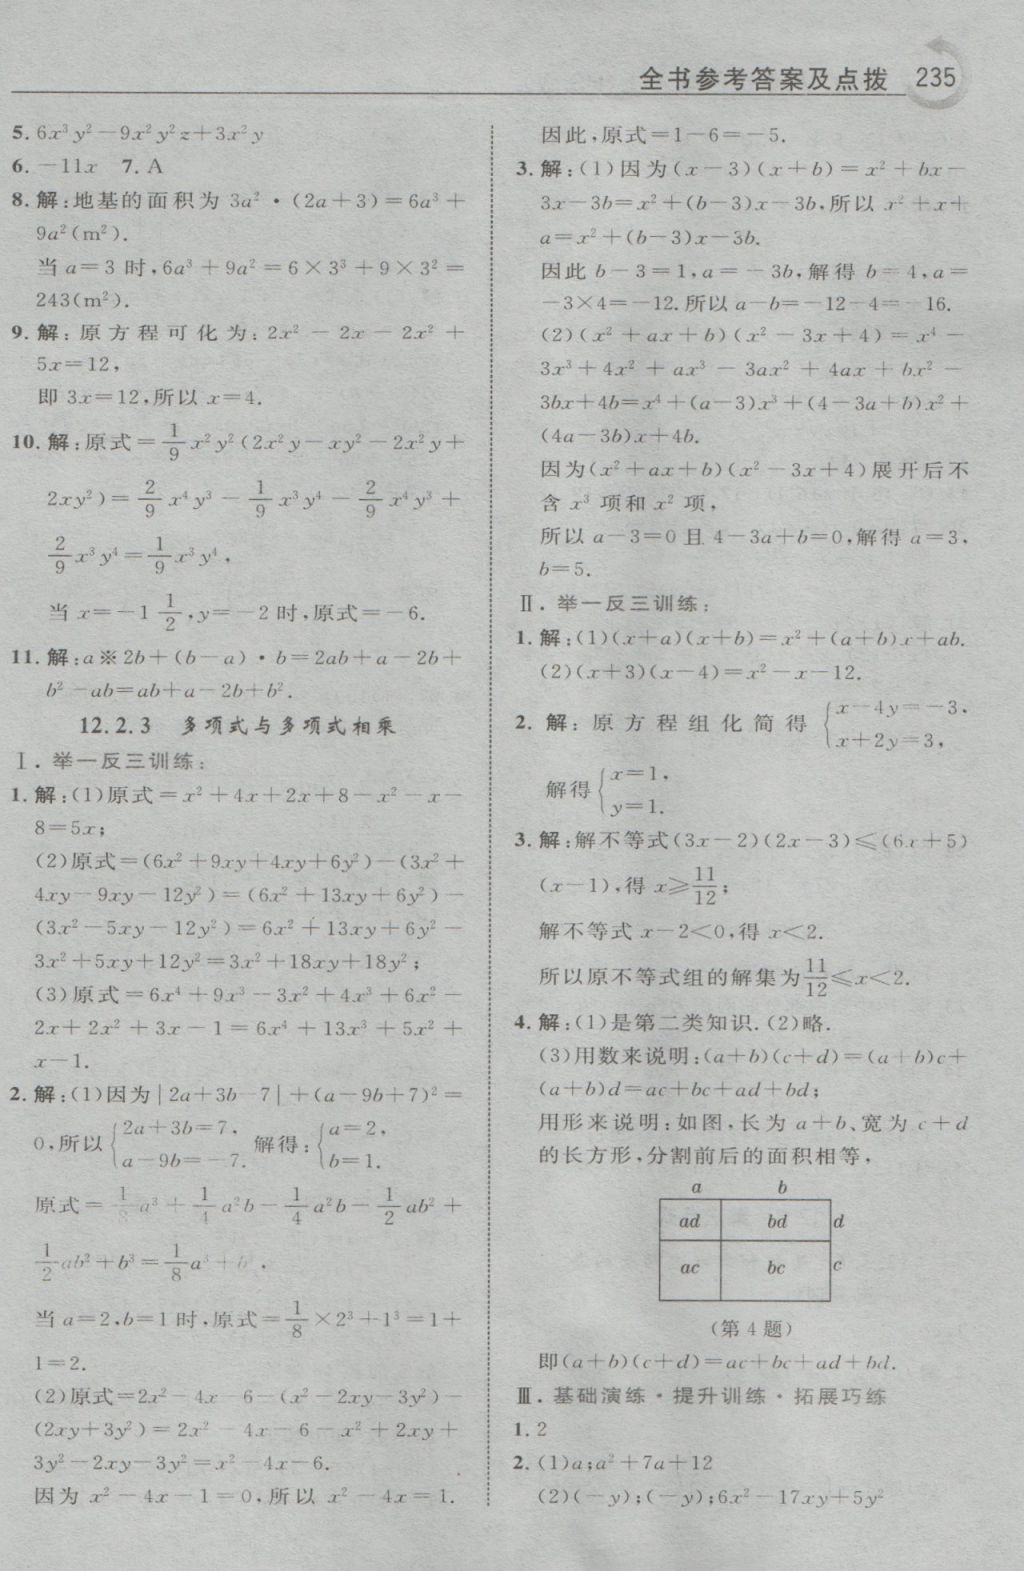 全书参考答案及点拨 235
5. 6x³y²－9x²y²z＋3x²y
6. －11x 7. A
8. 解:地基的面积为 3a²·(2a＋3)＝6a³＋
9a²(m²).
当 a＝3 时,6a³＋9a²＝6×3³＋9×3²＝
243(m²).
9. 解:原方程可化为:2x²－2x－2x²＋
5x＝12,
即 3x＝12,所以 x＝4.
10. 解:原式＝1/9 x²y²(2x²y－xy²－2x²y＋
2xy²)＝2/9 x⁴y³－1/9 x³y⁴－2/9 x⁴y³＋
2/9 x³y⁴＝1/9 x³y⁴,
当 x＝－1 1/2,y＝－2 时,原式＝－6.
11. 解:a※2b＋(b－a)·b＝2ab＋a－2b＋
b²－ab＝ab＋a－2b＋b².
12.2.3 多项式与多项式相乘
Ⅰ.举一反三训练:
1. 解:(1)原式＝x²＋4x＋2x＋8－x²－x－
8＝5x;
(2)原式＝(6x²＋9xy＋4xy＋6y²)－(3x²＋
4xy－9xy－12y²)＝(6x²＋13xy＋6y²)－
(3x²－5xy－12y²)＝6x²＋13xy＋6y²－
3x²＋5xy＋12y²＝3x²＋18xy＋18y²;
(3)原式＝6x⁴＋9x³－3x²＋4x³＋6x²－
2x＋2x²＋3x－1＝6x⁴＋13x³＋5x²＋
x－1.
2. 解:(1)因为|2a＋3b－7|＋(a－9b＋7)²＝
0,所以{2a＋3b＝7, a－9b＝－7. 解得:{a＝2, b＝1.
原式＝1/8 a³＋1/4 a²b－1/4 a²b－1/2 ab²＋
1/2 ab²＋b³＝1/8 a³＋b³,
当 a＝2,b＝1 时,原式＝1/8×2³＋1³＝1＋
1＝2.
(2)原式＝2x²－4x－6－(x²－2xy－3y²)－
(2xy＋3y²)＝2x²－4x－6－x²＋2xy＋
3y²－2xy－3y²＝x²－4x－6.
因为 x²－4x－1＝0,所以 x²－4x＝1.
因此,原式＝1－6＝－5.
3. 解:(1)因为(x－3)(x＋b)＝x²＋bx－
3x－3b＝x²＋(b－3)x－3b,所以 x²＋x＋
a＝x²＋(b－3)x－3b.
因此 b－3＝1,a＝－3b,解得 b＝4,a＝
－3×4＝－12.所以 a－b＝－12－4＝－16.
(2)(x²＋ax＋b)(x²－3x＋4)＝x⁴－
3x³＋4x²＋ax³－3ax²＋4ax＋bx²－
3bx＋4b＝x⁴＋(a－3)x³＋(4－3a＋b)x²＋
(4a－3b)x＋4b.
因为(x²＋ax＋b)(x²－3x＋4)展开后不
含 x³ 项和 x² 项,
所以 a－3＝0 且 4－3a＋b＝0,解得 a＝3,
b＝5.
Ⅱ.举一反三训练:
1. 解:(1)(x＋a)(x＋b)＝x²＋(a＋b)x＋ab.
(2)(x＋3)(x－4)＝x²－x－12.
2. 解:原方程组化简得{x－4y＝－3, x＋2y＝3,
解得{x＝1, y＝1.
3. 解:解不等式(3x－2)(2x－3)≤(6x＋5)
(x－1),得 x≥11/12;
解不等式 x－2＜0,得 x＜2.
所以原不等式组的解集为11/12≤x＜2.
4. 解:(1)是第二类知识.(2)略.
(3)用数来说明:(a＋b)(c＋d)＝(a＋b)c＋
(a＋b)d＝ac＋bc＋ad＋bd;
用形来说明:如图,长为 a＋b、宽为 c＋d
的长方形,分割前后的面积相等,
a b
ad bd d
ac bc c
(第 4 题)
即(a＋b)(c＋d)＝ac＋bc＋ad＋bd.
Ⅲ.基础演练·提升训练·拓展巧练
1. 2
2. (1)a;a²＋7a＋12
(2)(－y);(－y);6x²－17xy＋5y²